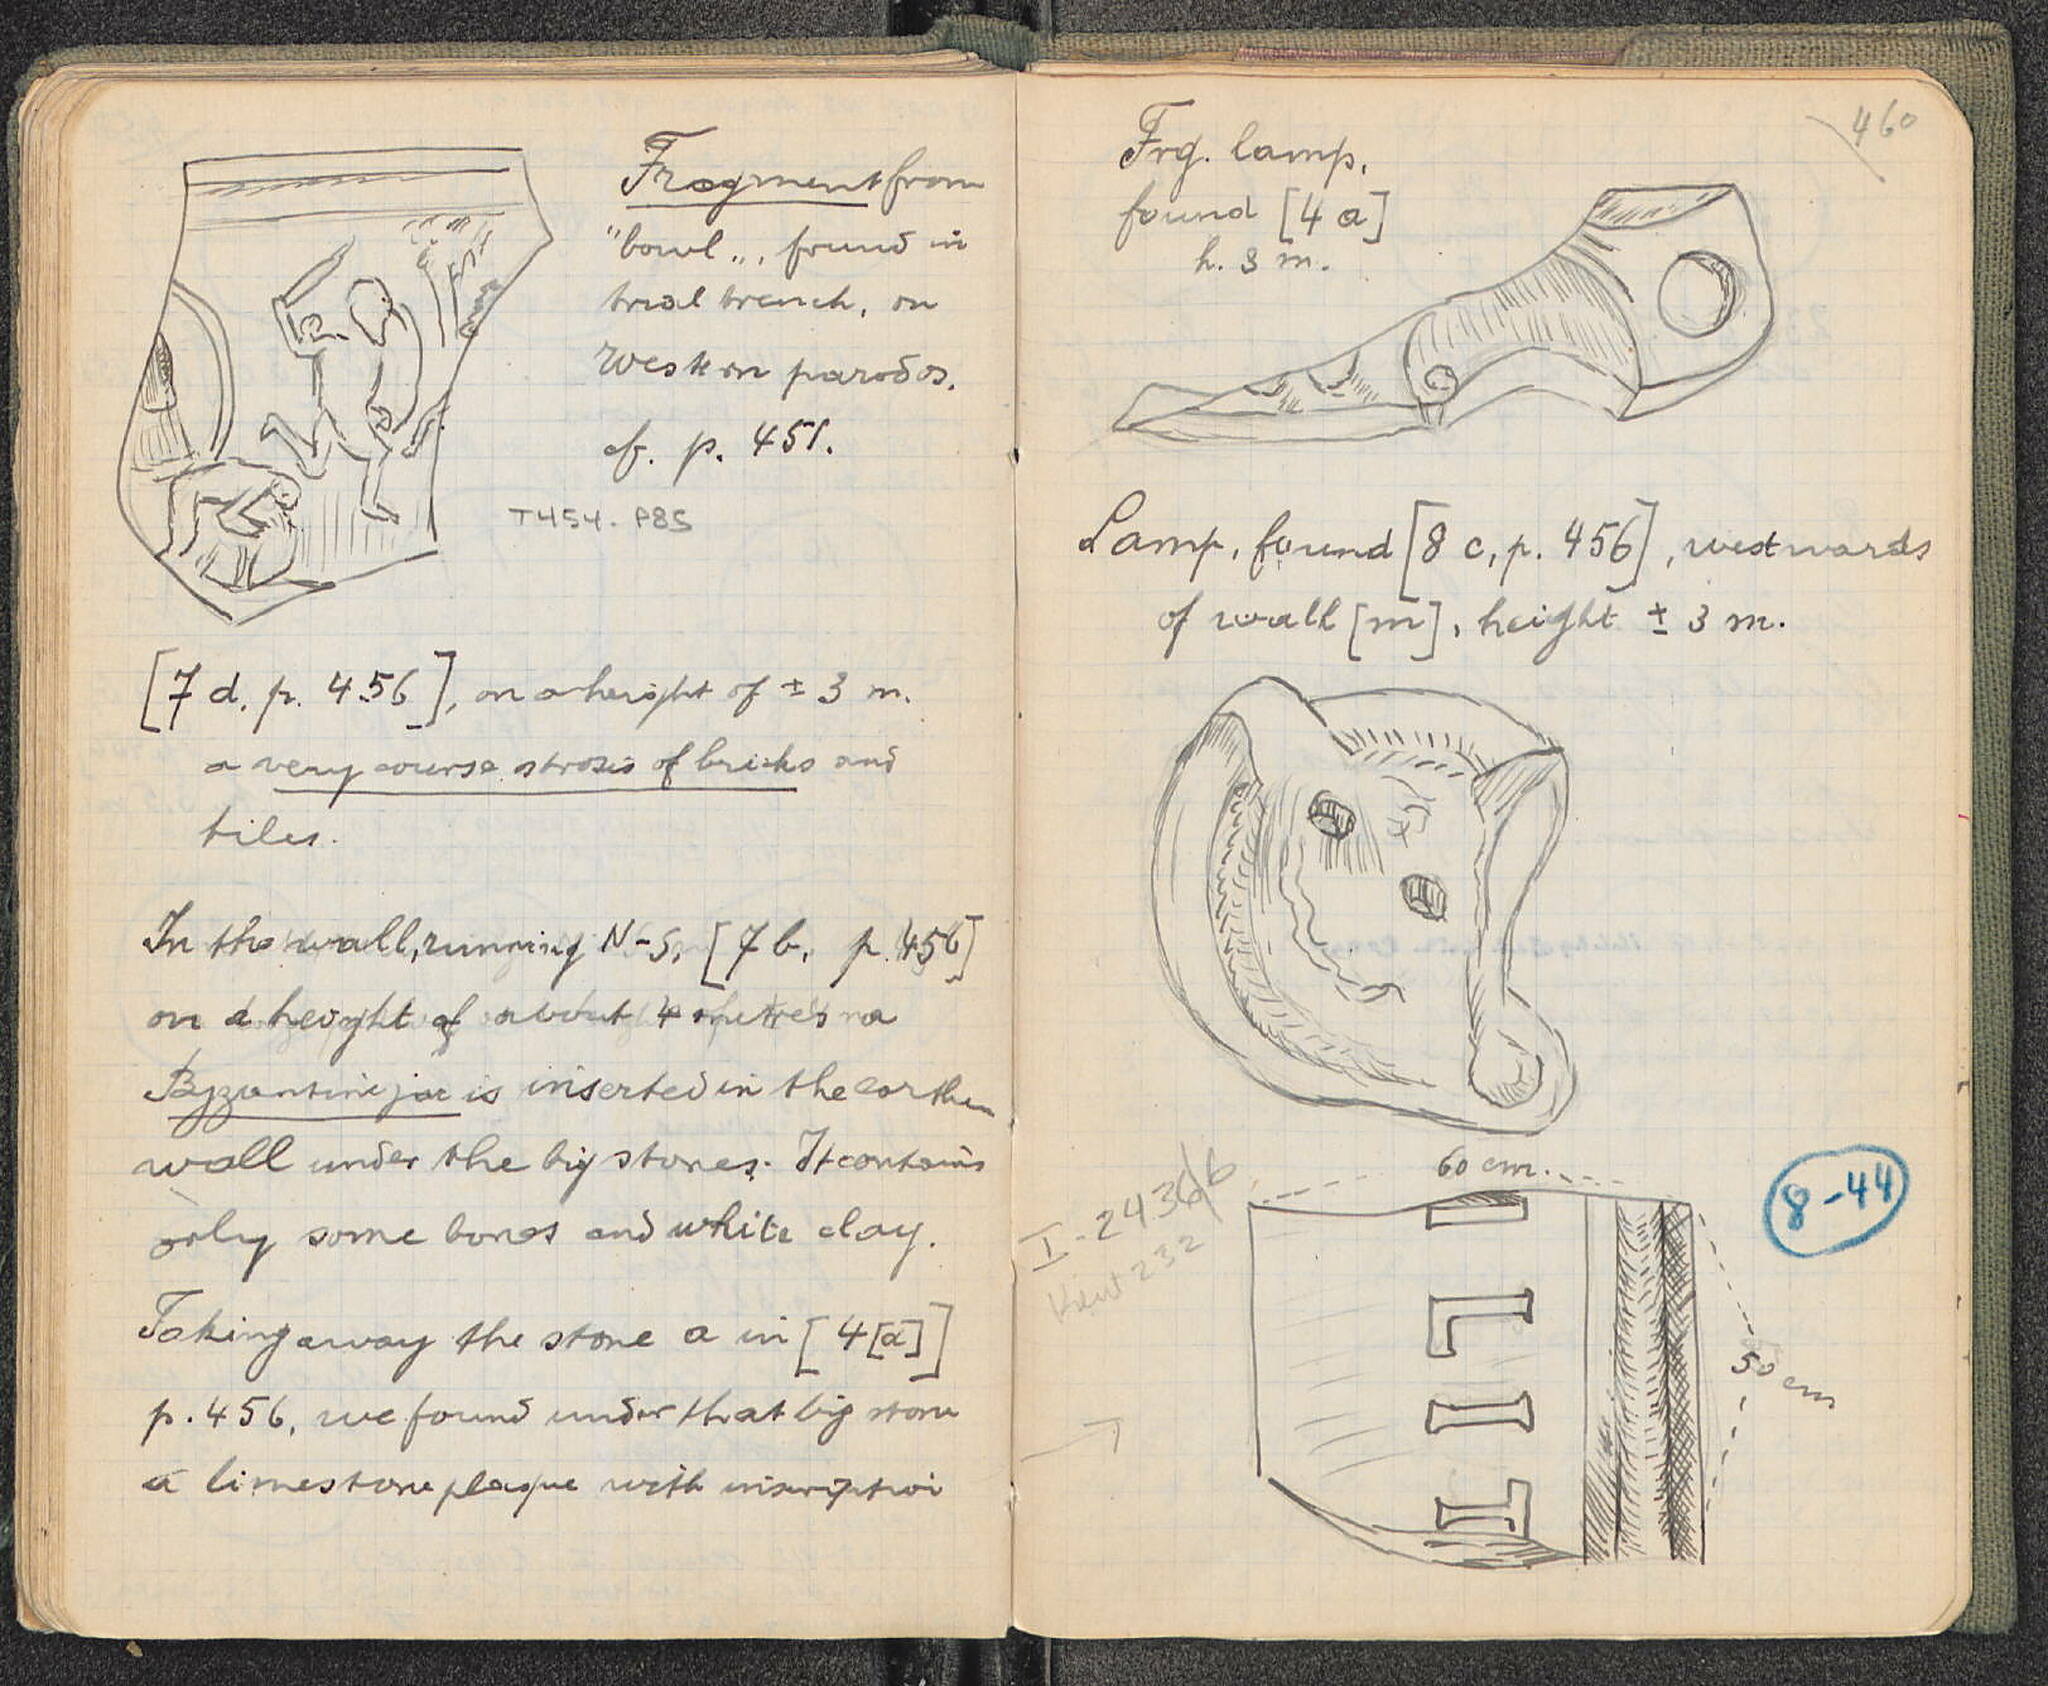 Fragment from
"bowl„, found in
trial trench, on
Western parodos.
cf. p. 451.
T454. P85
[7 d, p. 456], on a height of ± 3 m.
a very course strosis of bricks and
tiles.
In the wall, running N-S, [7 b, p. 456]
on a height of about 4 metres a
Byzantine jar is inserted in the earthen
wall under the big stones. It contains
only some bones and white clay.
Taking away the stone a in [4[a]]
p. 456, we found under that big stone
a limestone plaque with inscription
460
Frg. lamp,
found [4 a]
h. 3 m.
Lamp, found [8 c, p. 456], westwards
of wall [m], height ± 3 m.
60 cm.
8-44
I-2436b
Kent 232
50 cm
I L I T